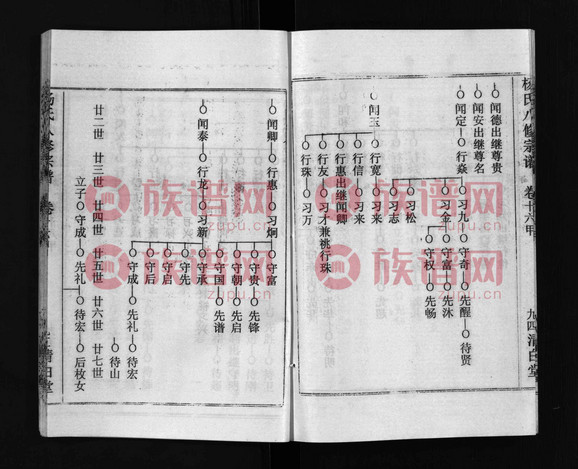 杨氏八修宗谱 卷十六甲 九四 清白堂
闻德出继尊贵
闻安出继尊名
闻定 行焱 习九 守奇 先醒 待贤
守富 先沐
习金 守权 先畅
习松
习志
闻玉 行宽 习来
行信 习来
行惠出继闻卿
行友 习才兼祧行珠
行珠 习万
闻卿 行惠 习炯 守富
守贵 先锋
守朝 先启
守国 先谱
闻泰 行龙 习新 守承
守先
守启
守后
守成 先礼 待宏
待山
廿二世 廿三世 廿四世 廿五世 廿六世 廿七世
立子 守成 先礼 待宏 后枚女
杨氏八修宗谱
清白堂
族谱网
zupu.cn
族谱网
zupu.cn
族谱网
zupu.cn
族谱网
zupu.cn